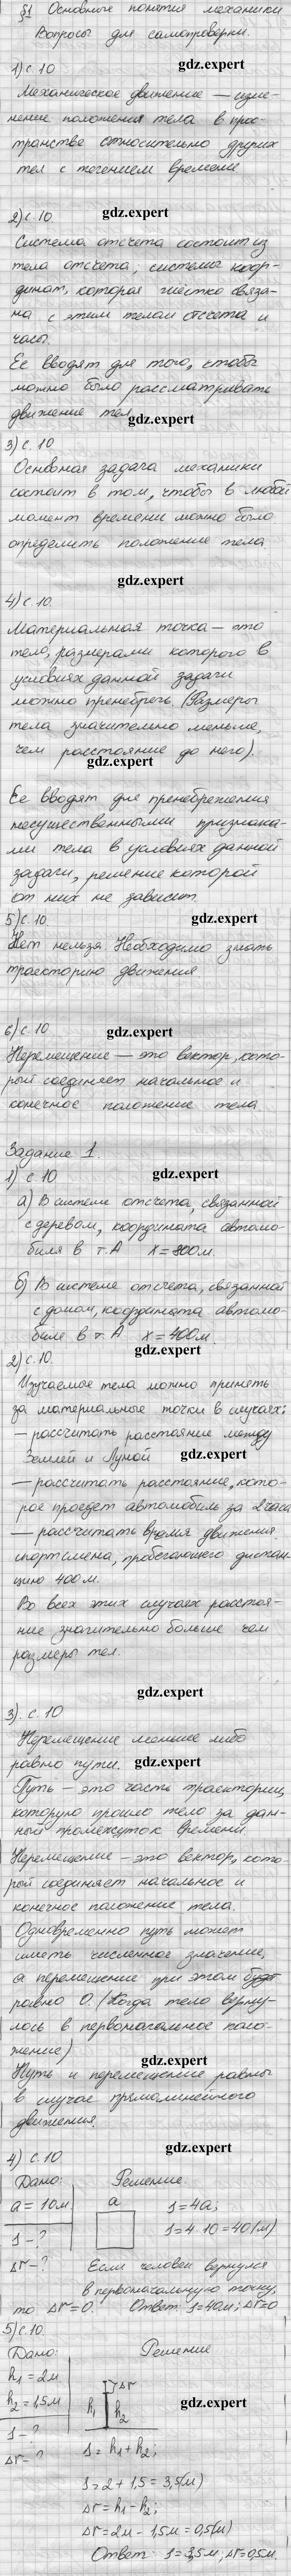 §1 Основные понятия механики
Вопросы для самопроверки.
1) с 10
gdz.expert
Механическое движение — изме-
нение положения тела в прос-
транстве относительно других
тел с течением времени
2) с. 10.
gdz.expert
Система отсчета состоит из
тела отсчета, система коор-
динат, которая жестко связа-
на с этим телом отсчета и
часы.
Ее вводят для того, чтобы
можно было рассматривать
движение тел
gdz.expert
3) с. 10
Основная задача механики
состоит в том, чтобы в любой
момент времени можно было
определить положение тела
gdz.expert
4) с. 10.
Материальная точка — это
тело, размерами которого в
условиях данной задачи
можно пренебречь. (Размеры
тела значительно меньше,
чем расстояние до него).
gdz.expert
Ее вводят для пренебрежения
несущественными признака-
ми тела в условиях данной
задачи, решение которой
от них не зависит
5) с. 10.
gdz.expert
Нет нельзя. Необходимо знать
траекторию движения
6) с. 10
gdz.expert
Перемещение — это вектор, кото-
рый соединяет начальное и
конечное положение тела
Задание 1.
1) с 10
gdz.expert
а) В системе отсчета, связанной
с деревом, координата автомо-
биля в т. А x = 800м.
б) В системе отсчета, связанной
с домом, координата автомо-
биле в т. А x = 400м.
gdz.expert
2) с. 10.
Изучаемые тела можно принять
за материальные точки в случаях:
— рассчитать расстояние между
Землей и Луной
gdz.expert
— рассчитать расстояние, кото-
рое проедет автомобиль за 2 часа
— рассчитать время движения
спортсмена, пробегающего дистан-
цию 400м.
Во всех этих случаях расстоя-
ние значительно больше чем
размеры тел.
gdz.expert
3). с. 10
Перемещение меньше либо
равно пути.
gdz.expert
Путь — это часть траектории,
которую прошло тело за дан-
ный промежуток времени.
Перемещение — это вектор, кото-
рый соединяет начальное и
конечное положение тела.
Одновременно путь может
иметь численное значение,
а перемещение при этом будет
равно 0. (Когда тело верну-
лось в первоначальное поло-
жение)
gdz.expert
Путь и перемещение равны
в случае прямолинейного
движения.
gdz.expert
4) с. 10
Дано: Решение.
a = 10м a S = 4a;
S - ? S = 4 · 10 = 40 (м)
Δr - ? Если человек вернулся
в первоначальную точку,
то Δr = 0. Ответ: S = 40м; Δr = 0
5) с. 10.
Дано: Решение
h₁ = 2м Δr
h₂ = 1,5м h₁ h₂
gdz.expert
S - ?
Δr - ? S = h₁ + h₂;
S = 2 + 1,5 = 3,5(м)
Δr = h₁ - h₂;
Δr = 2м - 1,5м = 0,5(м)
Ответ: S = 3,5м; Δr = 0,5м.